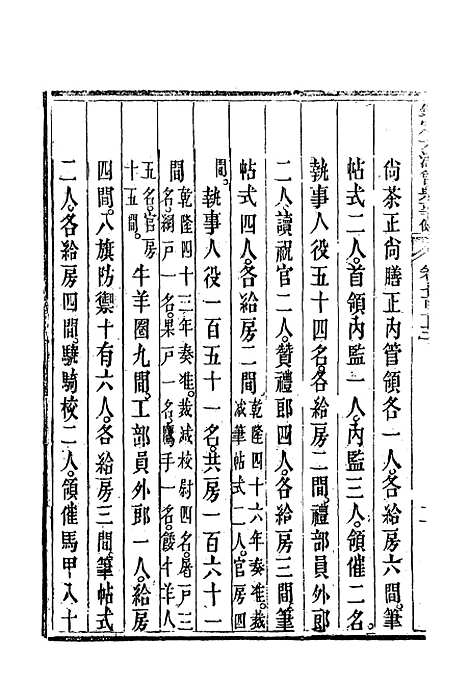 尙茶正尙膳正內管領各一人各給房六間筆
帖式二人首領內監一人內監三人領催二名
執事人役五十四名各給房二間禮部員外郎
二人讀祝官二人贊禮郎四人各給房三間筆
帖式四人各給房二間乾隆四十六年奏准
裁筆帖式二人官房四
間執事人役一百五十一名共房一百六十一
間乾隆四十三年奏准裁減校尉四名屠戶三
名網戶一名果戶一名鷹手一名餧牛羊人
五名官房
十五間牛羊圈九間工部員外郎一人給房
四間八旗防禦十有六人各給房三間筆帖式
二人各給房四間驍騎校二人領催馬甲八十